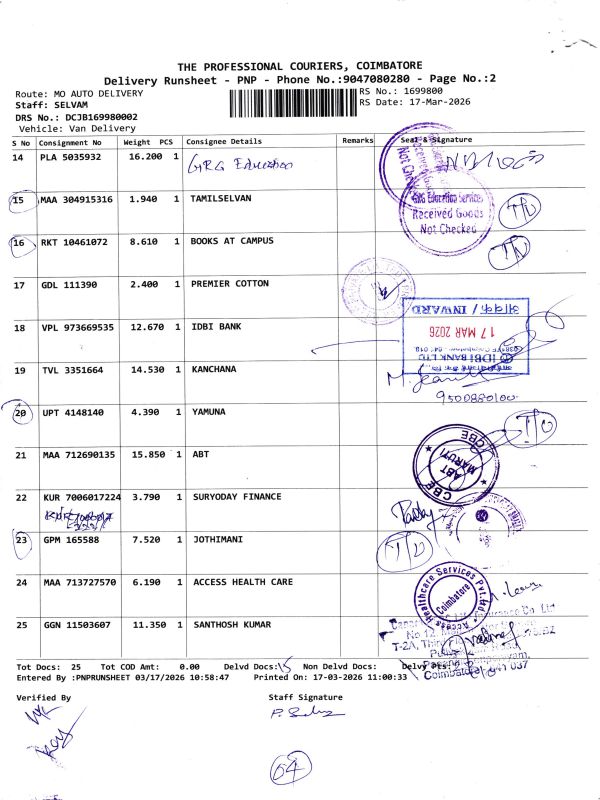 THE PROFESSIONAL COURIERS, COIMBATORE
Delivery Runsheet - PNP - Phone No.:9047080280 - Page No.:2
Route: MO AUTO DELIVERY
RS No.: 1699800
Staff: SELVAM
RS Date: 17-Mar-2026
DRS No.: DCJB169980002
Vehicle: Van Delivery
S No Consignment No Weight PCS Consignee Details Remarks Seal & Signature
14 PLA 5035932 16.200 1 GRG Education
Received Goods
Not Checked
15 MAA 304915316 1.940 1 TAMILSELVAN
GRG Education Services
Received Goods
Not Checked
16 RKT 10461072 8.610 1 BOOKS AT CAMPUS
17 GDL 111390 2.400 1 PREMIER COTTON
आवक / INWARD
17 MAR 2026
IDBI BANK LTD
18 VPL 973669535 12.670 1 IDBI BANK
19 TVL 3351664 14.530 1 KANCHANA
9500880100
20 UPT 4148140 4.390 1 YAMUNA
21 MAA 712690135 15.850 1 ABT
CBE
ABT
MARUTI
CBE
22 KUR 7006017224 3.790 1 SURYODAY FINANCE
23 GPM 165588 7.520 1 JOTHIMANI
24 MAA 713727570 6.190 1 ACCESS HEALTH CARE
Access Healthcare Services Pvt. Ltd.
Coimbatore
25 GGN 11503607 11.350 1 SANTHOSH KUMAR
Tot Docs: 25 Tot COD Amt: 0.00 Delvd Docs: 15 Non Delvd Docs: Delvy Pts:
Entered By :PNPRUNSHEET 03/17/2026 10:58:47 Printed On: 17-03-2026 11:00:33
Verified By
Staff Signature
64